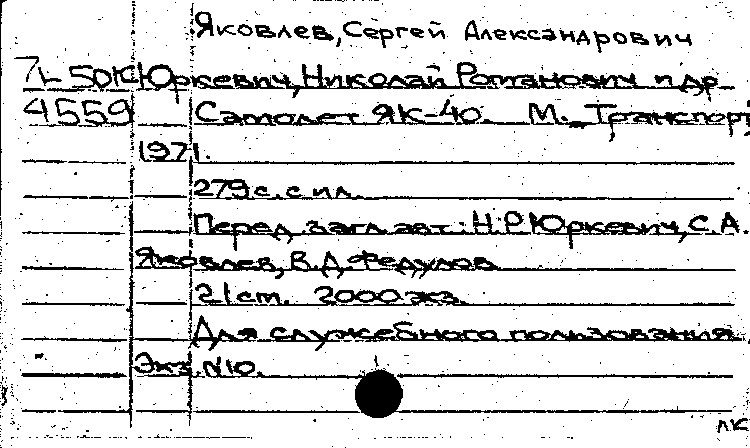 Яковлев, Сергей Александрович
Юркевич, Николай Романович и др.
4559 Самолет ЯК-40. М., Транспорт,
1971.
279 с. с ил.
Перед загл. авт.: Н.Р. Юркевич, С.А.
Яковлев, В.Д. Федулов.
21 см. 2000 экз.
Для служебного пользования.
Экз. №10.
лк